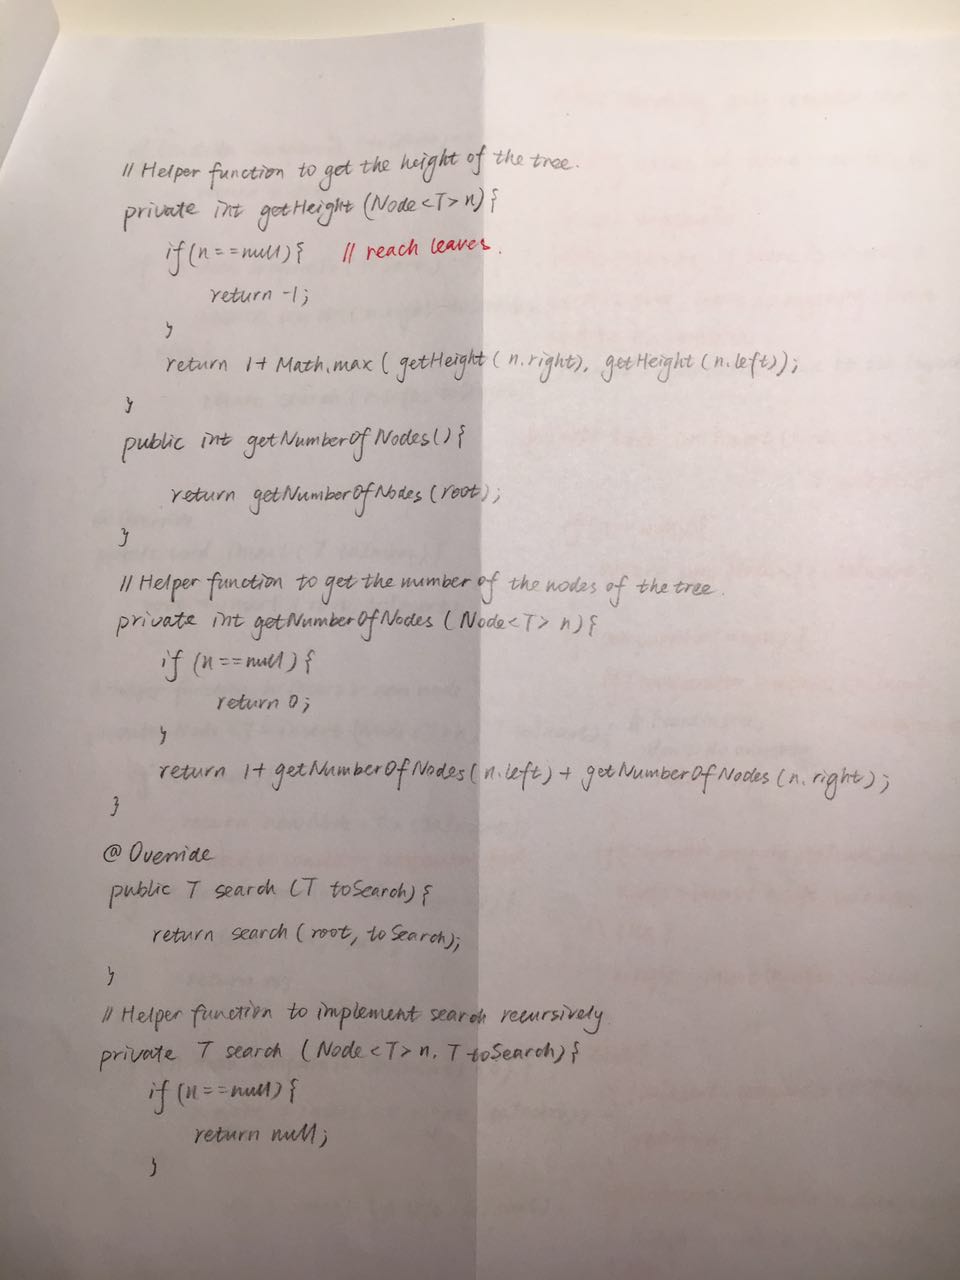 // Helper function to get the height of the tree.
private int getHeight (Node<T> n) {
if (n==null) { // reach leaves.
return -1;
}
return 1+ Math.max ( getHeight ( n.right), getHeight (n.left));
}
public int getNumberOfNodes() {
return getNumberOfNodes (root);
}
// Helper function to get the number of the nodes of the tree.
private int getNumberOfNodes (Node<T> n) {
if (n==null) {
return 0;
}
return 1+ getNumberOfNodes (n.left) + getNumberOfNodes (n.right);
}
@ Override
public T search (T toSearch) {
return search (root, toSearch);
}
// Helper function to implement search recursively
private T search (Node<T> n, T toSearch) {
if (n==null) {
return null;
}